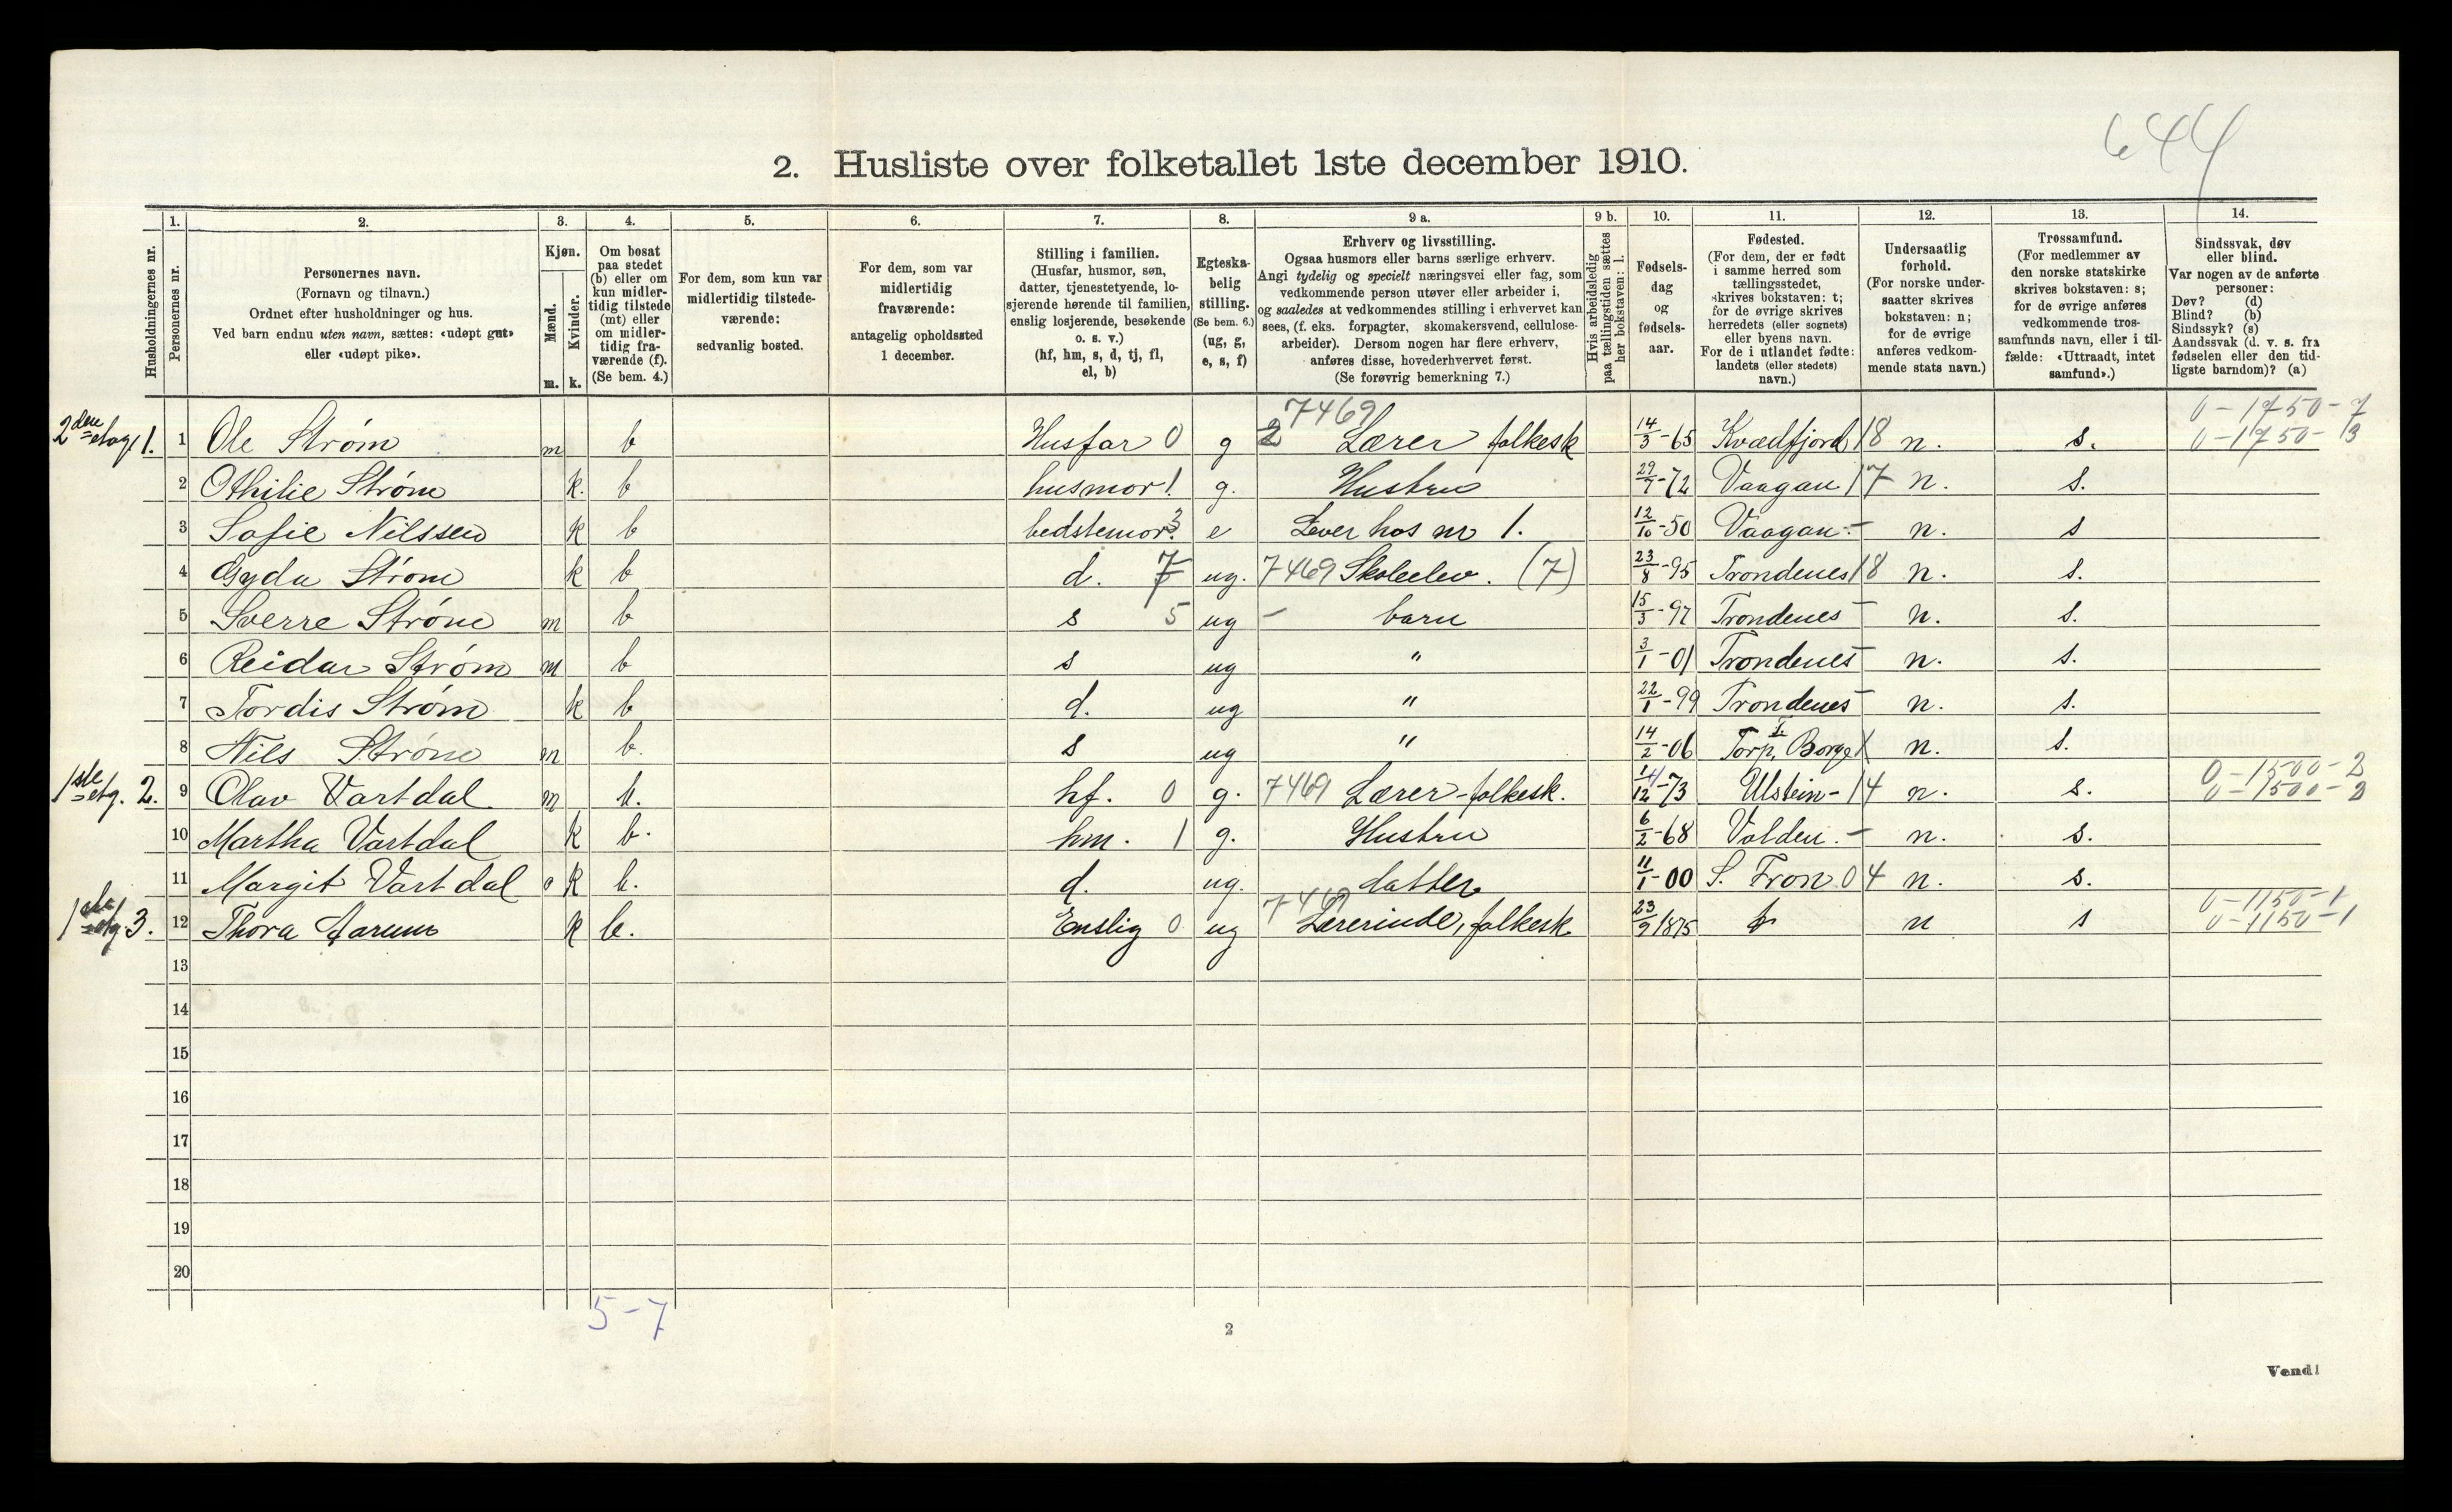 644
2. Husliste over folketallet 1ste december 1910.
Husholdningernes nr.
1. Personernes nr.
2. Personernes navn. (Fornavn og tilnavn.) Ordnet efter husholdninger og hus. Ved barn endnu uten navn, sættes: «udøpt gut» eller «udøpt pike».
3. Kjøn. Mænd. m. Kvinder. k.
4. Om bosat paa stedet (b) eller om kun midlertidig tilstede (mt) eller om midlertidig fraværende (f). (Se bem. 4.)
5. For dem, som kun var midlertidig tilstedeværende: sedvanlig bosted.
6. For dem, som var midlertidig fraværende: antagelig opholdssted 1 december.
7. Stilling i familien. (Husfar, husmor, søn, datter, tjenestetyende, losjerende hørende til familien, enslig losjerende, besøkende o. s. v.) (hf, hm, s, d, tj, fl, el, b)
8. Egteskabelig stilling. (Se bem. 6.) (ug, g, e, s, f)
9 a. Erhverv og livsstilling. Ogsaa husmors eller barns særlige erhverv. Angi tydelig og specielt næringsvei eller fag, som vedkommende person utøver eller arbeider i, og saaledes at vedkommendes stilling i erhvervet kan sees, (f. eks. forpagter, skomakersvend, cellulosearbeider). Dersom nogen har flere erhverv, anføres disse, hovederhvervet først. (Se forøvrig bemerkning 7.)
9 b. Hvis arbeidsledig paa tællingstiden sættes her bokstaven: l.
10. Fødselsdag og fødselsaar.
11. Fødested. (For dem, der er født i samme herred som tællingsstedet, skrives bokstaven: t; for de øvrige skrives herredets (eller sognets) eller byens navn. For de i utlandet fødte: landets (eller stedets) navn.)
12. Undersaatlig forhold. (For norske undersaatter skrives bokstaven: n; for de øvrige anføres vedkommende stats navn.)
13. Trossamfund. (For medlemmer av den norske statskirke skrives bokstaven: s; for de øvrige anføres vedkommende trossamfunds navn, eller i tilfælde: «Uttraadt, intet samfund».)
14. Sindssvak, døv eller blind. Var nogen av de anførte personer: Døv? (d) Blind? (b) Sindssyk? (s) Aandssvak (d. v. s. fra fødselen eller den tidligste barndom)? (a)
2den etage 1. 1 Ole Strøm m b Husfar 0 g 2 7469 Lærer folkesk 14/3-65 Kvædfjord 18 n. s. 0-1750-7 0-1750-3
2 Othilie Strøm k. b husmor 1. g. Hustru 29/7-72 Vaagan 17 n. s.
3 Sofie Nilssen k b bedstemor 3 e Lever hos nr 1. 12/10-50 Vaagan - n. s
4 Gyda Strøm k b d. 7 ug. 7469 Skoleelev. (7) 23/8-95 Trondenes 18 n. s.
5 Sverre Strøm m b s 5 ug - barn 15/3-97 Trondenes - n. s.
6 Reidar Strøm m b s ug " 3/1-01 Trondenes - n. s.
7 Tordis Strøm k b d. ug " 22/1-99 Trondenes - n. s.
8 Nils Strøm m b. s ug " 14/2-06 Torp, Borge n. s.
1ste etg. 2. 9 Olav Vartdal m b. hf. 0 g. 7469 Lærer-folkesk. 1/12-73 Ulstein - 14 n. s. 0-1500-2 0-1500-2
10 Martha Vartdal k b. hm. 1 g. Hustru 6/2-68 Volden. - n. s.
11 Margit Vartdal k b. d. ug. datter 11/1-00 S. Fron 04 n. s.
1ste etg 3. 12 Thora Aarum k b. Enslig 0 ug 7469 Lærerinde, folkesk 23/9 1875 t n s 0-1150-1 0-1150-1
13
14
15
16
17
18
19
20
5-7
2
Vend!